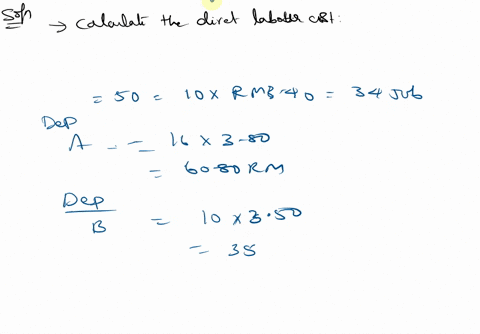 Soln → Calculate the diret labour cost:
= 50 = 10 × RM8.40 = 34 Job
Dep
A - = 16 × 3.80
= 60.80 RM
Dep
B = 10 × 3.50
= 35